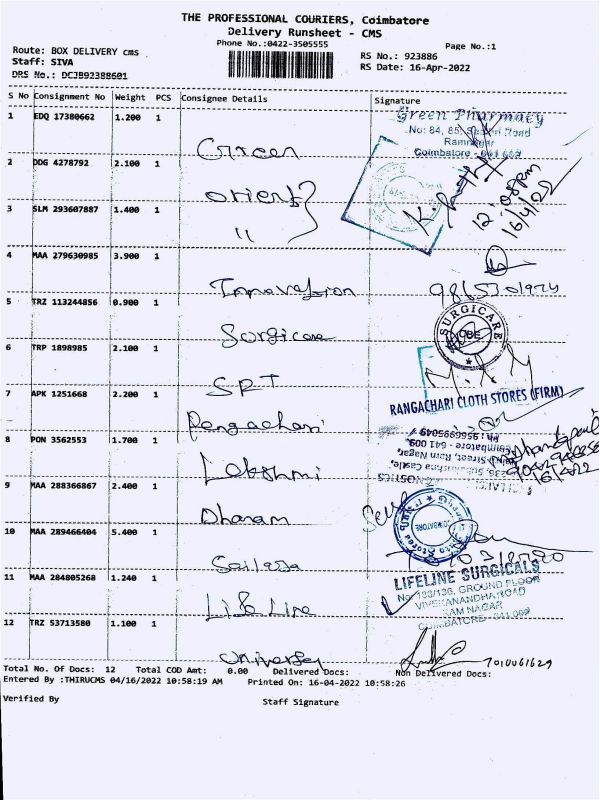 THE PROFESSIONAL COURIERS, Coimbatore
Delivery Runsheet - CMS
Phone No.:0422-3505555
Page No.:1
Route: BOX DELIVERY CMS
Staff: SIVA
DRS No.: DCJB92388601
RS No.: 923886
RS Date: 16-Apr-2022
S No Consignment No Weight PCS Consignee Details Signature
1 EDQ 17380662 1.200 1
Green
Green Pharmacy
No: 84, 85,
Road
Ramnagar
Coimbatore
2 DDG 4278792 2.100 1
orient
12:08pm
16/4/22
3 SLM 293607887 1.400 1
"
4 MAA 279630985 3.900 1
Innovation
5 TRZ 113244856 0.900 1
Surgicare
SURGICARE
CBE
6 TRP 1898985 2.100 1
SRT
7 APK 1251668 2.200 1
Rengachari
RANGACHARI CLOTH STORES (FIRM)
8 PON 3562553 1.700 1
Lakshmi
Ph: 9566995049
Coimbatore - 641 009.
Ram Nagar,
Castle,
9 MAA 288366867 2.400 1
Dharam
10 MAA 289466404 5.400 1
COIMBATORE
11 MAA 284805268 1.240 1
Life Line
LIFELINE SURGICALS
No. 133/136, GROUND FLOOR
VIVEKANANDHA ROAD
RAM NAGAR
COIMBATORE - 641 009
12 TRZ 53713580 1.100 1
7010061629
Total No. Of Docs: 12 Total COD Amt: 0.00 Delivered Docs: Non Delivered Docs:
Entered By :THIRUCMS 04/16/2022 10:58:19 AM Printed On: 16-04-2022 10:58:26
Verified By Staff Signature